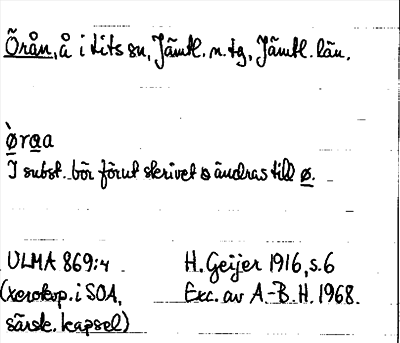 Örån, å i Lits sn, Jämtl. n. tg, Jämtl. län.
ø̀rɑa
I subst. bör förut skrivet ɵ ändras till ø.
ULMA 869:4 H. Geijer 1916, s. 6
(xerokop. i SOA, Exc. av A.-B. H. 1968.
särsk. kapsel)